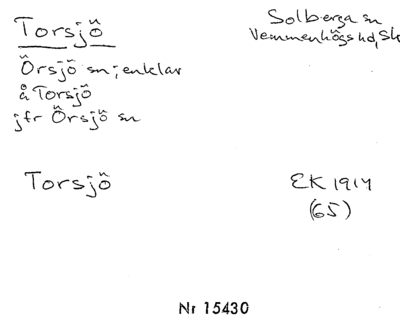 Torsjö
Solberga sn
Vemmenhögs hd, Sk
Örsjö sn; enklav
å Torsjö
jfr Örsjö sn
Torsjö
EK 1914
(65)
Nr 15430